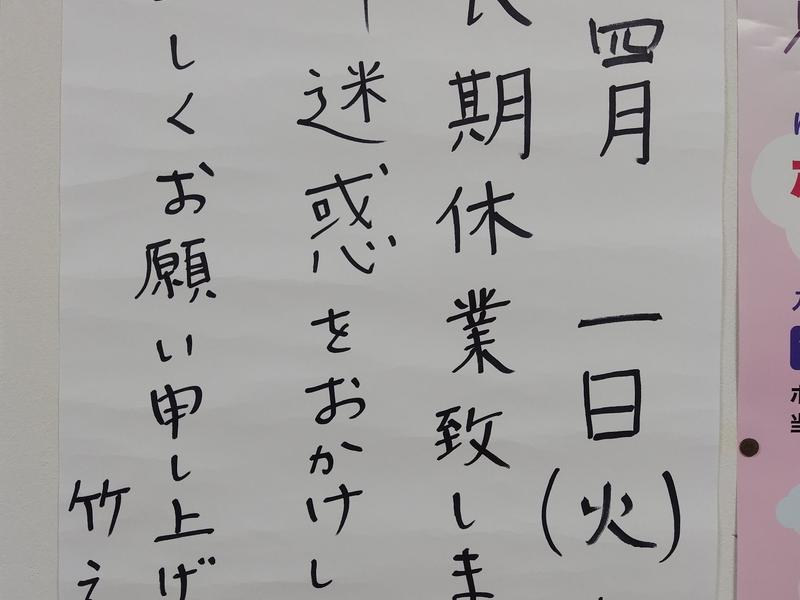 四月 一日(火)
長期休業致しま
迷惑をおかけし
しくお願い申し上げ
竹